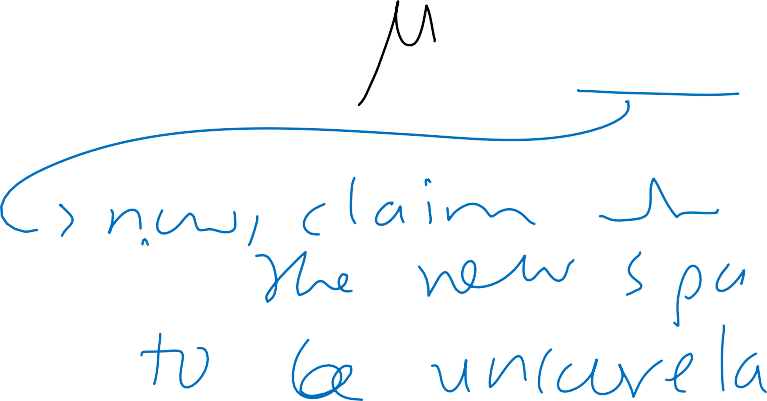 μ
now, claim
the new spa
to be uncorrela